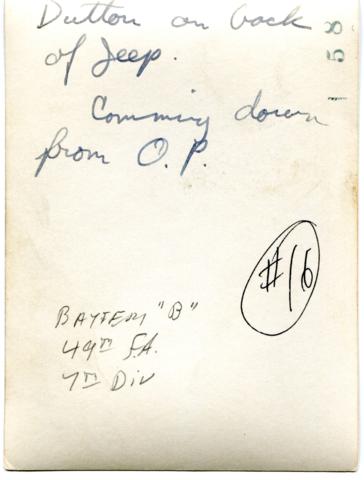 Dutton on back
of Jeep.
Comming down
from O.P.
158
#16
BATTERY "B"
49TH F.A.
7TH DIV